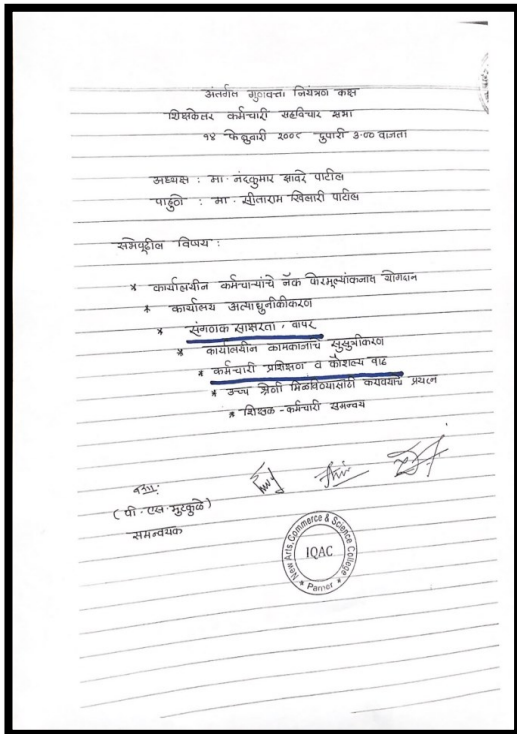 अंतर्गत गुणवत्ता नियंत्रण कक्ष
शिक्षकेतर कर्मचारी सहविचार सभा
१४ फेब्रुवारी २००८ दुपारी ३.०० वाजता
अध्यक्ष : मा. नंदकुमार झावरे पाटील
पाहुणे : मा. सीताराम खिलारी पाटील
सभेपुढील विषय :
* कार्यालयीन कर्मचाऱ्यांचे नॅक पोरमूल्यांकनात योगदान
* कार्यालय अत्याधुनीकीकरण
* संगणक साक्षरता, वापर
* कार्यालयीन कामकाजाचे सुसूत्रीकरण
* कर्मचारी प्रशिक्षण व कौशल्य वाढ
* उच्च श्रेणी मिळविण्यासाठी करावयाचे प्रयत्न
* शिक्षक - कर्मचारी समन्वय
(पी. एस. मुरकुळे)
समन्वयक
New Arts, Commerce & Science College
IQAC
* Parner *